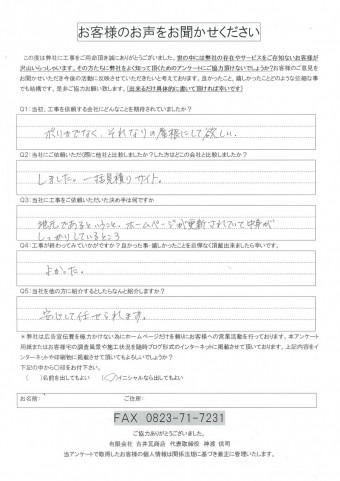 お客様のお声をお聞かせください
この度は弊社に工事をご用命頂き誠にありがとうございました。世の中には弊社の存在やサービスをご存知ないお客様が
沢山いらっしゃいます。その方たちに弊社をよく知って頂くためのアンケートにご協力頂けないでしょうか?お客様のご意見を
お聞かせいただき今後の活動に反映させていただきたいと考えております。良かったこと、嬉しかったことどのような些細な事
でも結構です。是非ご協力お願い致します。(出来るだけ具体的に書いて頂ければ幸いです)
Q1:当初、工事を依頼する会社にどんなことを期待されていましたか?
ボリカでなく、それなりの屋根にして欲しい.
Q2:当社にご依頼いただく際に他社と比較しましたか?した方はどこの会社と比較しましたか?
しました。一括見積りサイト。
Q3:当社に工事をご依頼いただいた決め手は何ですか
地元であるということ、ホームページが更新されていて中身が
しっかりしているところ
Q4:工事が終わってみていかがですか?良かった事・嬉しかったことを忌憚なく頂戴出来ましたら幸いです。
よかった。
Q5:当社を他の方に紹介するとしたらなんと紹介しますか?
安心して任せられます。
*弊社は広告宣伝費を極力かけない為にホームページだけを頼りにお客様への営業活動を行っております。本アンケート
用紙またはお客様宅の調査風景や施工状況を随時ブログ形式のインターネットに掲載させて頂いております。上記内容をイ
ンターネットや印刷物に掲載させて頂いてもよろしいでしょうか?
下記の中から〇印をお付下さい。
( )名前を出してもよい (○)イニシャルなら出してもよい
お名前: ご住所:
FAX 0823-71-7231
ご協力ありがとうございました。
有限会社 古井瓦商店 代表取締役 神渡 信司
当アンケートで取得したお客様の個人情報は関係法規に基づき厳正に管理いたします。